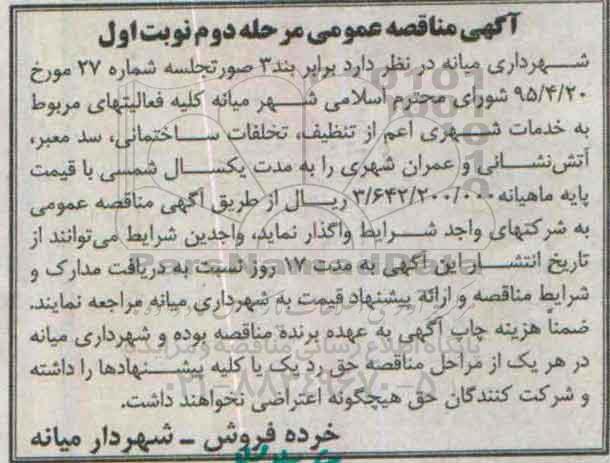 آگهی مناقصه عمومی مرحله دوم نوبت اول
شهرداری میانه در نظر دارد برابر بند۳ صورتجلسه شماره ۲۷ مورخ
۹۵/۴/۲۰ شورای محترم اسلامی شهر میانه کلیه فعالیتهای مربوط
به خدمات شهری اعم از تنظیف، تخلفات ساختمانی، سد معبر،
آتش‌نشانی و عمران شهری را به مدت یکسال شمسی با قیمت
پایه ماهیانه ۳/۶۴۲/۲۰۰/۰۰۰ ریال از طریق آگهی مناقصه عمومی
به شرکتهای واجد شرایط واگذار نماید، واجدین شرایط می‌توانند از
تاریخ انتشار این آگهی به مدت ۱۷ روز نسبت به دریافت مدارک و
شرایط مناقصه و ارائه پیشنهاد قیمت به شهرداری میانه مراجعه نمایند.
ضمناً هزینه چاپ آگهی به عهده برنده مناقصه بوده و شهرداری میانه
در هر یک از مراحل مناقصه حق رد یک یا کلیه پیشنهادها را داشته
و شرکت کنندگان حق هیچگونه اعتراضی نخواهند داشت.
خرده فروش ـ شهردار میانه
ParsNamadData
پایگاه اطلاع رسانی مناقصه و مزایده
۰۲۱-۸۸۳۴۹۶۷۰-۵